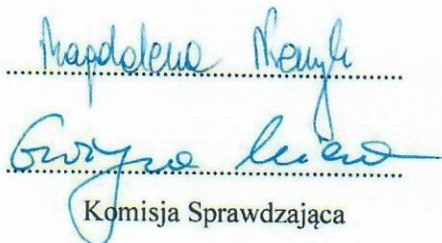 Magdalena
Grażyna
Komisja Sprawdzająca